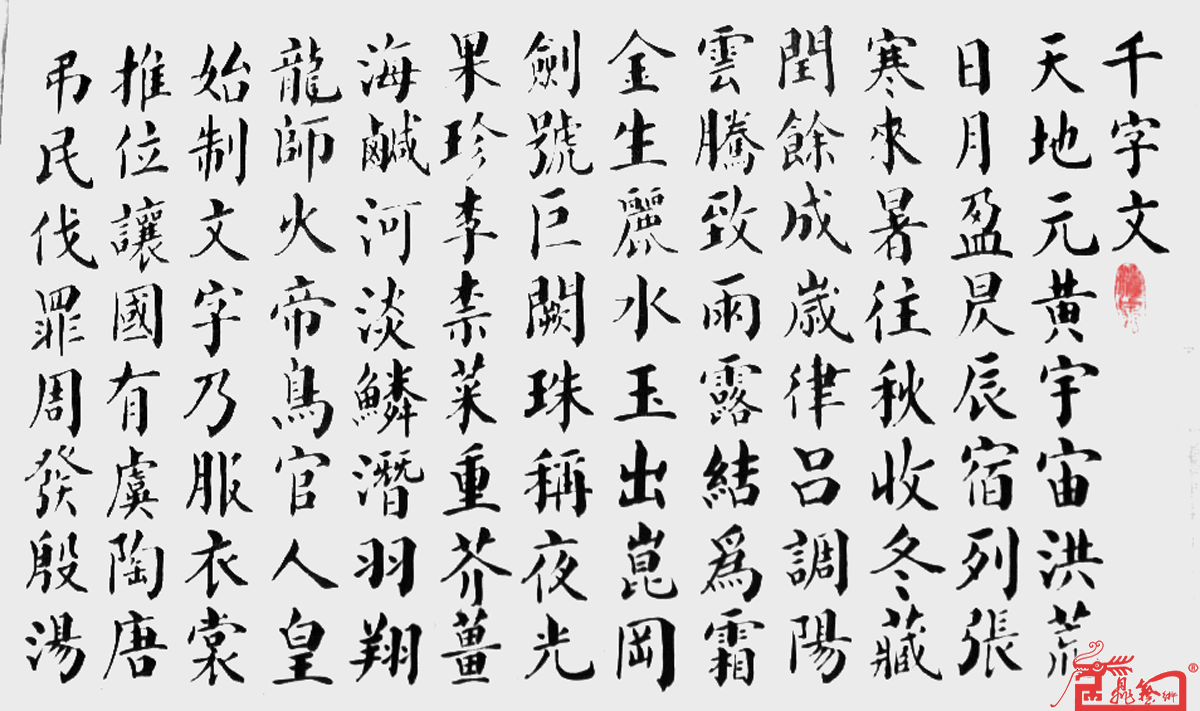 千字文
天地元黃宇宙洪荒
日月盈昃辰宿列張
寒來暑往秋收冬藏
閏餘成歲律呂調陽
雲騰致雨露結為霜
金生麗水玉出崑岡
劍號巨闕珠稱夜光
果珍李柰菜重芥薑
海鹹河淡鱗潛羽翔
龍師火帝鳥官人皇
始制文字乃服衣裳
推位讓國有虞陶唐
弔民伐罪周發殷湯